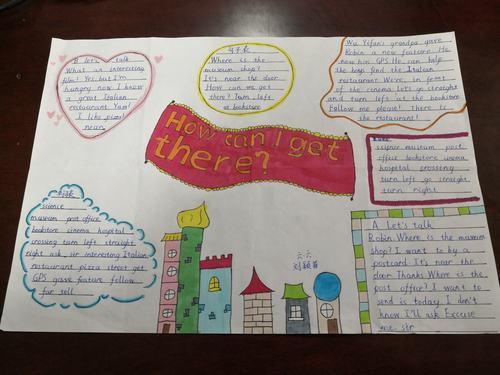 B let's talk
What an interesting
film! Yes, but I'm
hungry now. I know
a great Italian
restaurant Yum!
I like pizza!
near
句子长
Where is the
museum shop?
It's near the door
How can we get
there? Turn left
at bookstore
Wu Yifan's grandpa gave
Robin a new feature. He
now has GPS. He can help
the boys find the Italian
restaurant We're in front
of the cinema. Let's go straight
and turn left at the bookstore
Follow me please! There is
the restaurant!
How can I get
there?
science museum post
office bookstore cinema
hospital crossing
turn left go straight
turn right
science
museum post office
bookstore cinema hospital
crossing turn left straight
right ask sir interesting Italian
restaurant pizza street get
GPS gave feature follow
far tell
六.六
A Let's talk
Robin. Where is the museum
shop? I want to by a
postcard It's near the
door Thanks. Where is the
post office? I want to
send is today I don't
know. I'll ask Excuse
me, sir